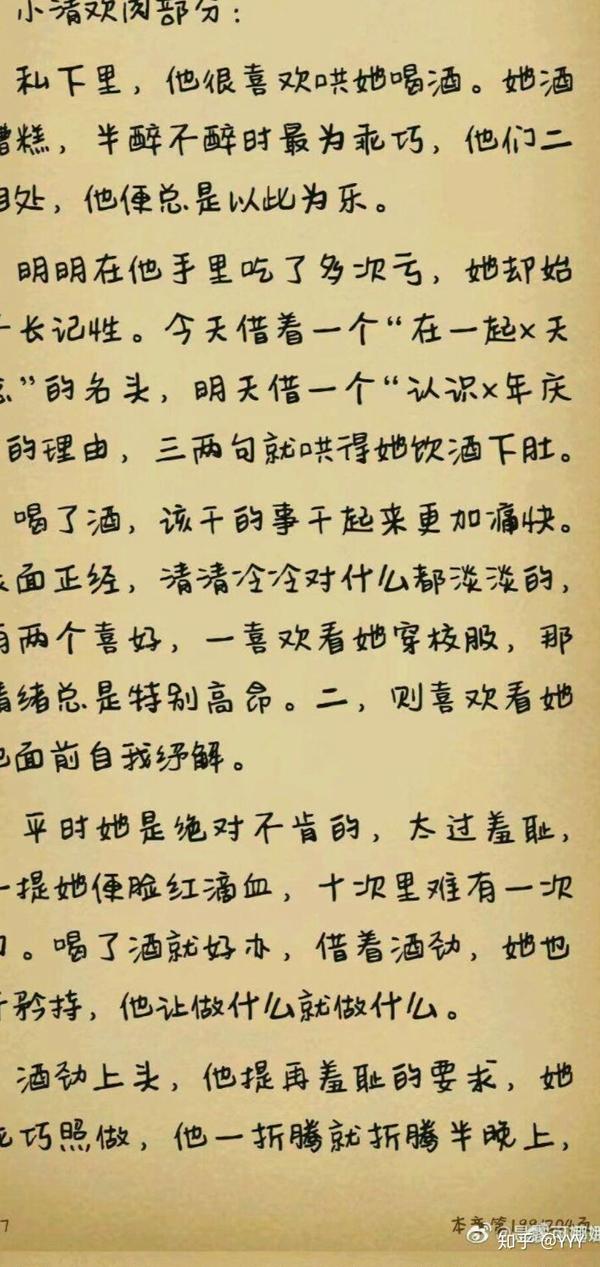 小清欢肉部分：
私下里，他很喜欢哄她喝酒。她酒
糟糕，半醉不醉时最为乖巧，他们二
相处，他便总是以此为乐。
明明在他手里吃了多次亏，她却始
长记性。今天借着一个“在一起x天
”的名头，明天借一个“认识x年庆
的理由，三两句就哄得她饮酒下肚。
喝了酒，该干的事干起来更加痛快。
面正经，清清冷冷对什么都淡淡的，
有两个喜好，一喜欢看她穿校服，那
情绪总是特别高昂。二，则喜欢看她
面前自我纾解。
平时她是绝对不肯的，太过羞耻，
一提她便脸红滴血，十次里难有一次
。喝了酒就好办，借着酒劲，她也
矜持，他让做什么就做什么。
酒劲上头，他提再羞耻的要求，她
乖巧照做，他一折腾就折腾半晚上，
7
知乎 @YYY